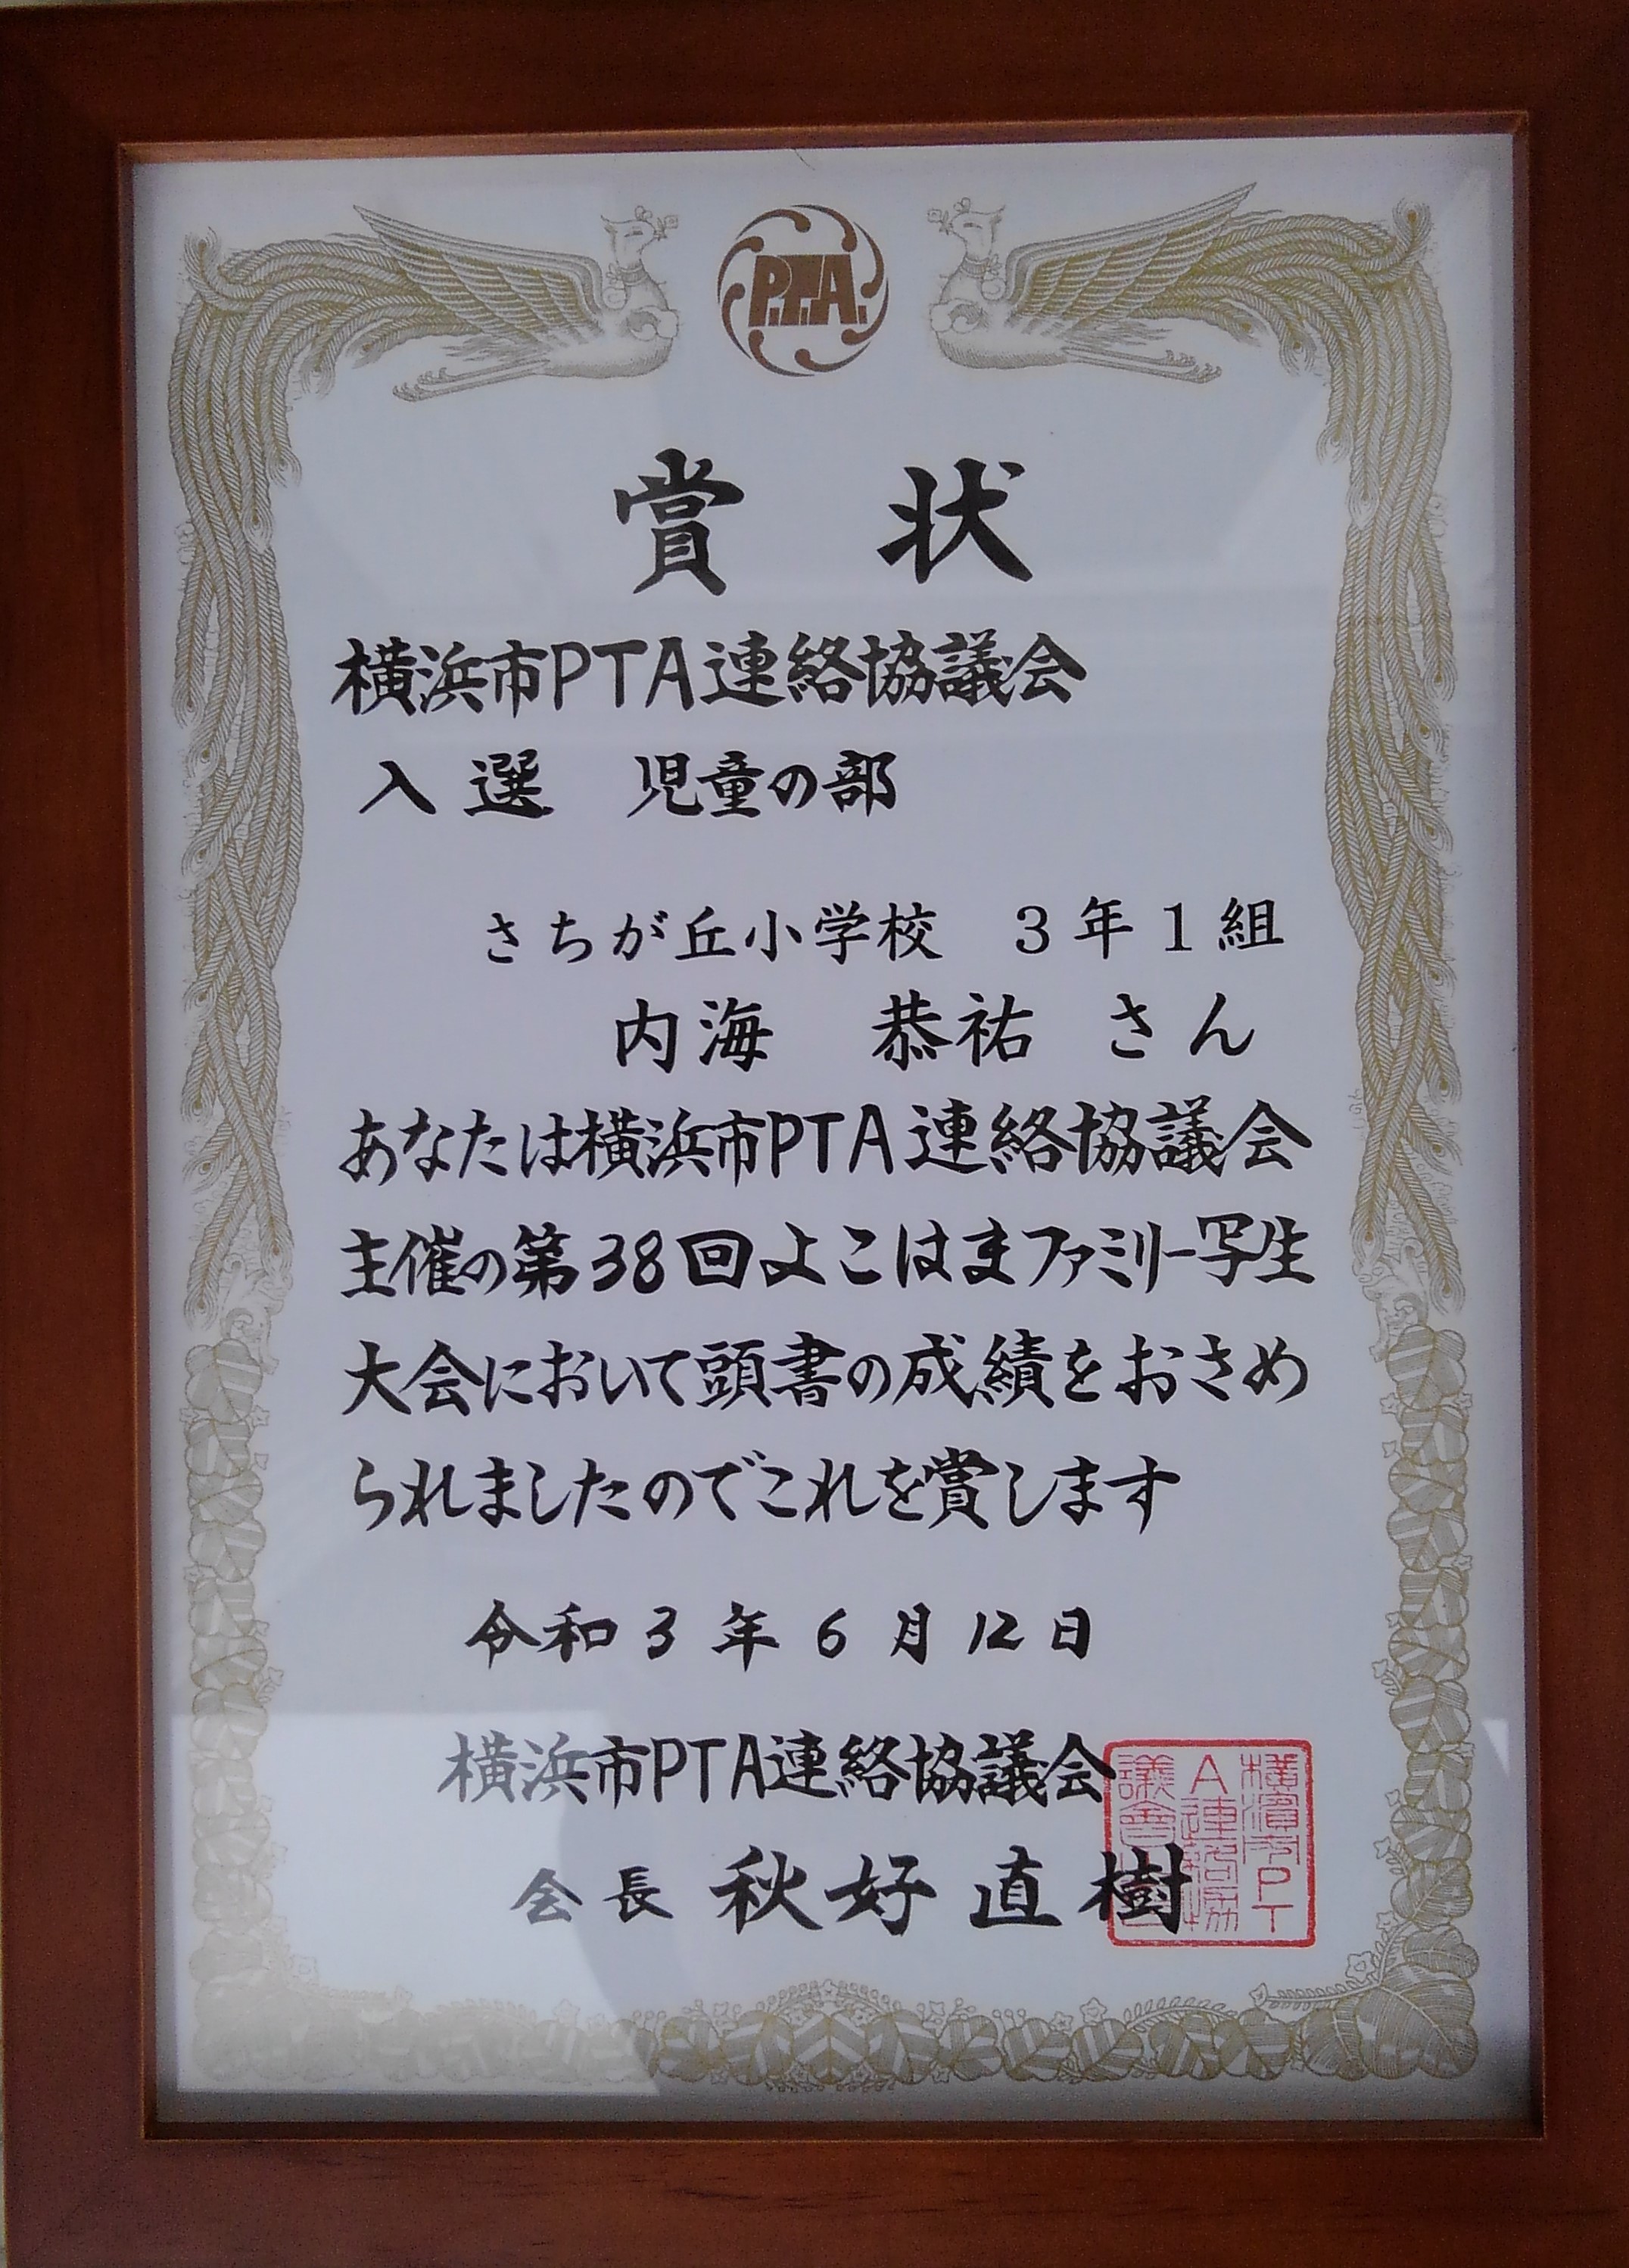 P.T.A.
賞 状
横浜市PTA連絡協議会
入選 児童の部
さちが丘小学校 3年1組
内海 恭祐 さん
あなたは横浜市PTA連絡協議会
主催の第38回よこはまファミリー写生
大会において頭書の成績をおさめ
られましたのでこれを賞します
令和3年6月12日
横浜市PTA連絡協議会
会長 秋好直樹
横濱市PT
A連絡協
議會